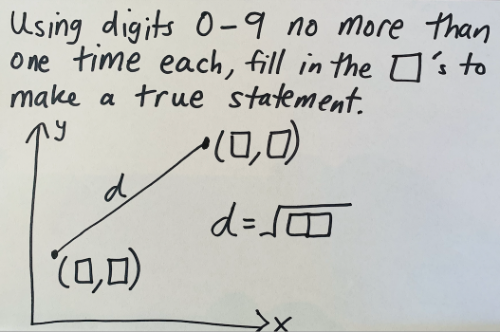 Using digits 0-9 no more than
one time each, fill in the □'s to
make a true statement.
y
(□,□)
d
d=√□□
(□,□)
x